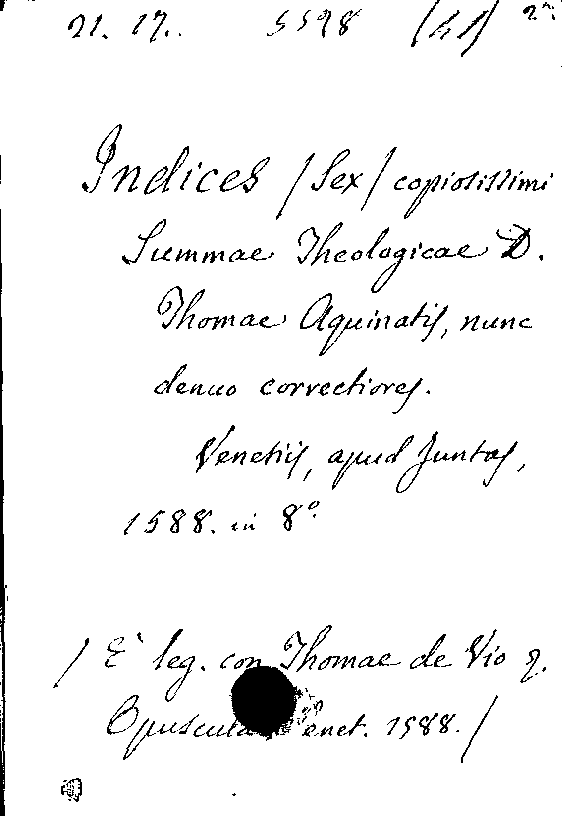 21. 17. 5598 (41) 2ª
Indices / Sex / copiosissimi
Summae Theologicae D.
Thomae Aquinatis, nunc
denuo correctiores.
Venetiis, apud Juntas,
1588. in 8º.
/ E' leg. con Thomae de Vio
Opuscula Venet. 1588. /